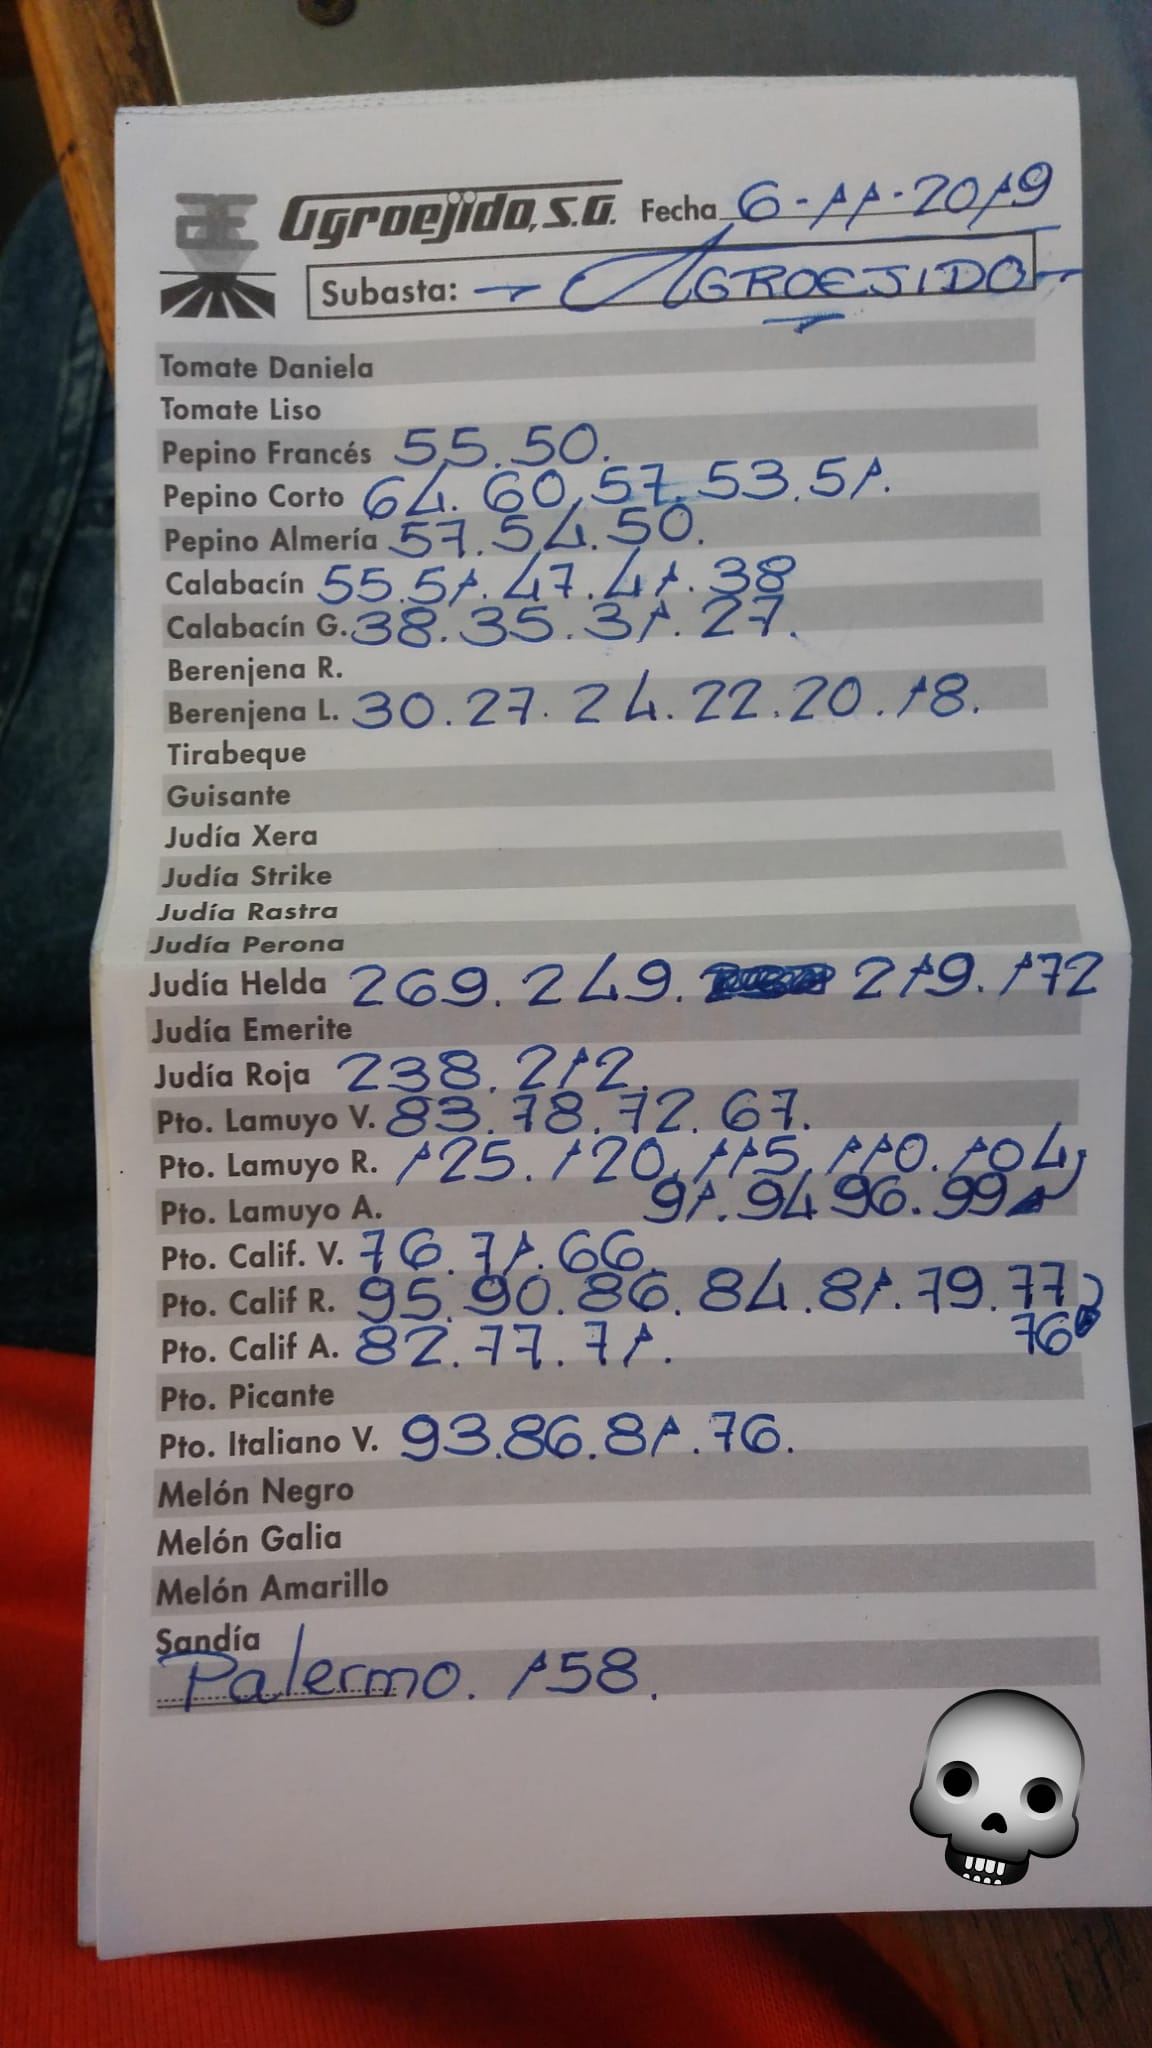 Agroejido, S.A. Fecha 6-11-2019
Subasta: → AGROEJIDO
Tomate Daniela
Tomate Liso
Pepino Francés 55.50.
Pepino Corto 64.60.57.53.51.
Pepino Almería 57.54.50.
Calabacín 55.51.47.41.38
Calabacín G. 38.35.31.27.
Berenjena R.
Berenjena L. 30.27.24.22.20.18.
Tirabeque
Guisante
Judía Xera
Judía Strike
Judía Rastra
Judía Perona
Judía Helda 269.249. 219.172
Judía Emerite
Judía Roja 238.212.
Pto. Lamuyo V. 83.78.72.67.
Pto. Lamuyo R. 125.120.115.110.104
Pto. Lamuyo A. 91.94 96.99
Pto. Calif. V. 76.71.66.
Pto. Calif R. 95.90.86.84.81.79.77
Pto. Calif A. 82.77.71. 76
Pto. Picante
Pto. Italiano V. 93.86.81.76.
Melón Negro
Melón Galia
Melón Amarillo
Sandía
Palermo. 158.